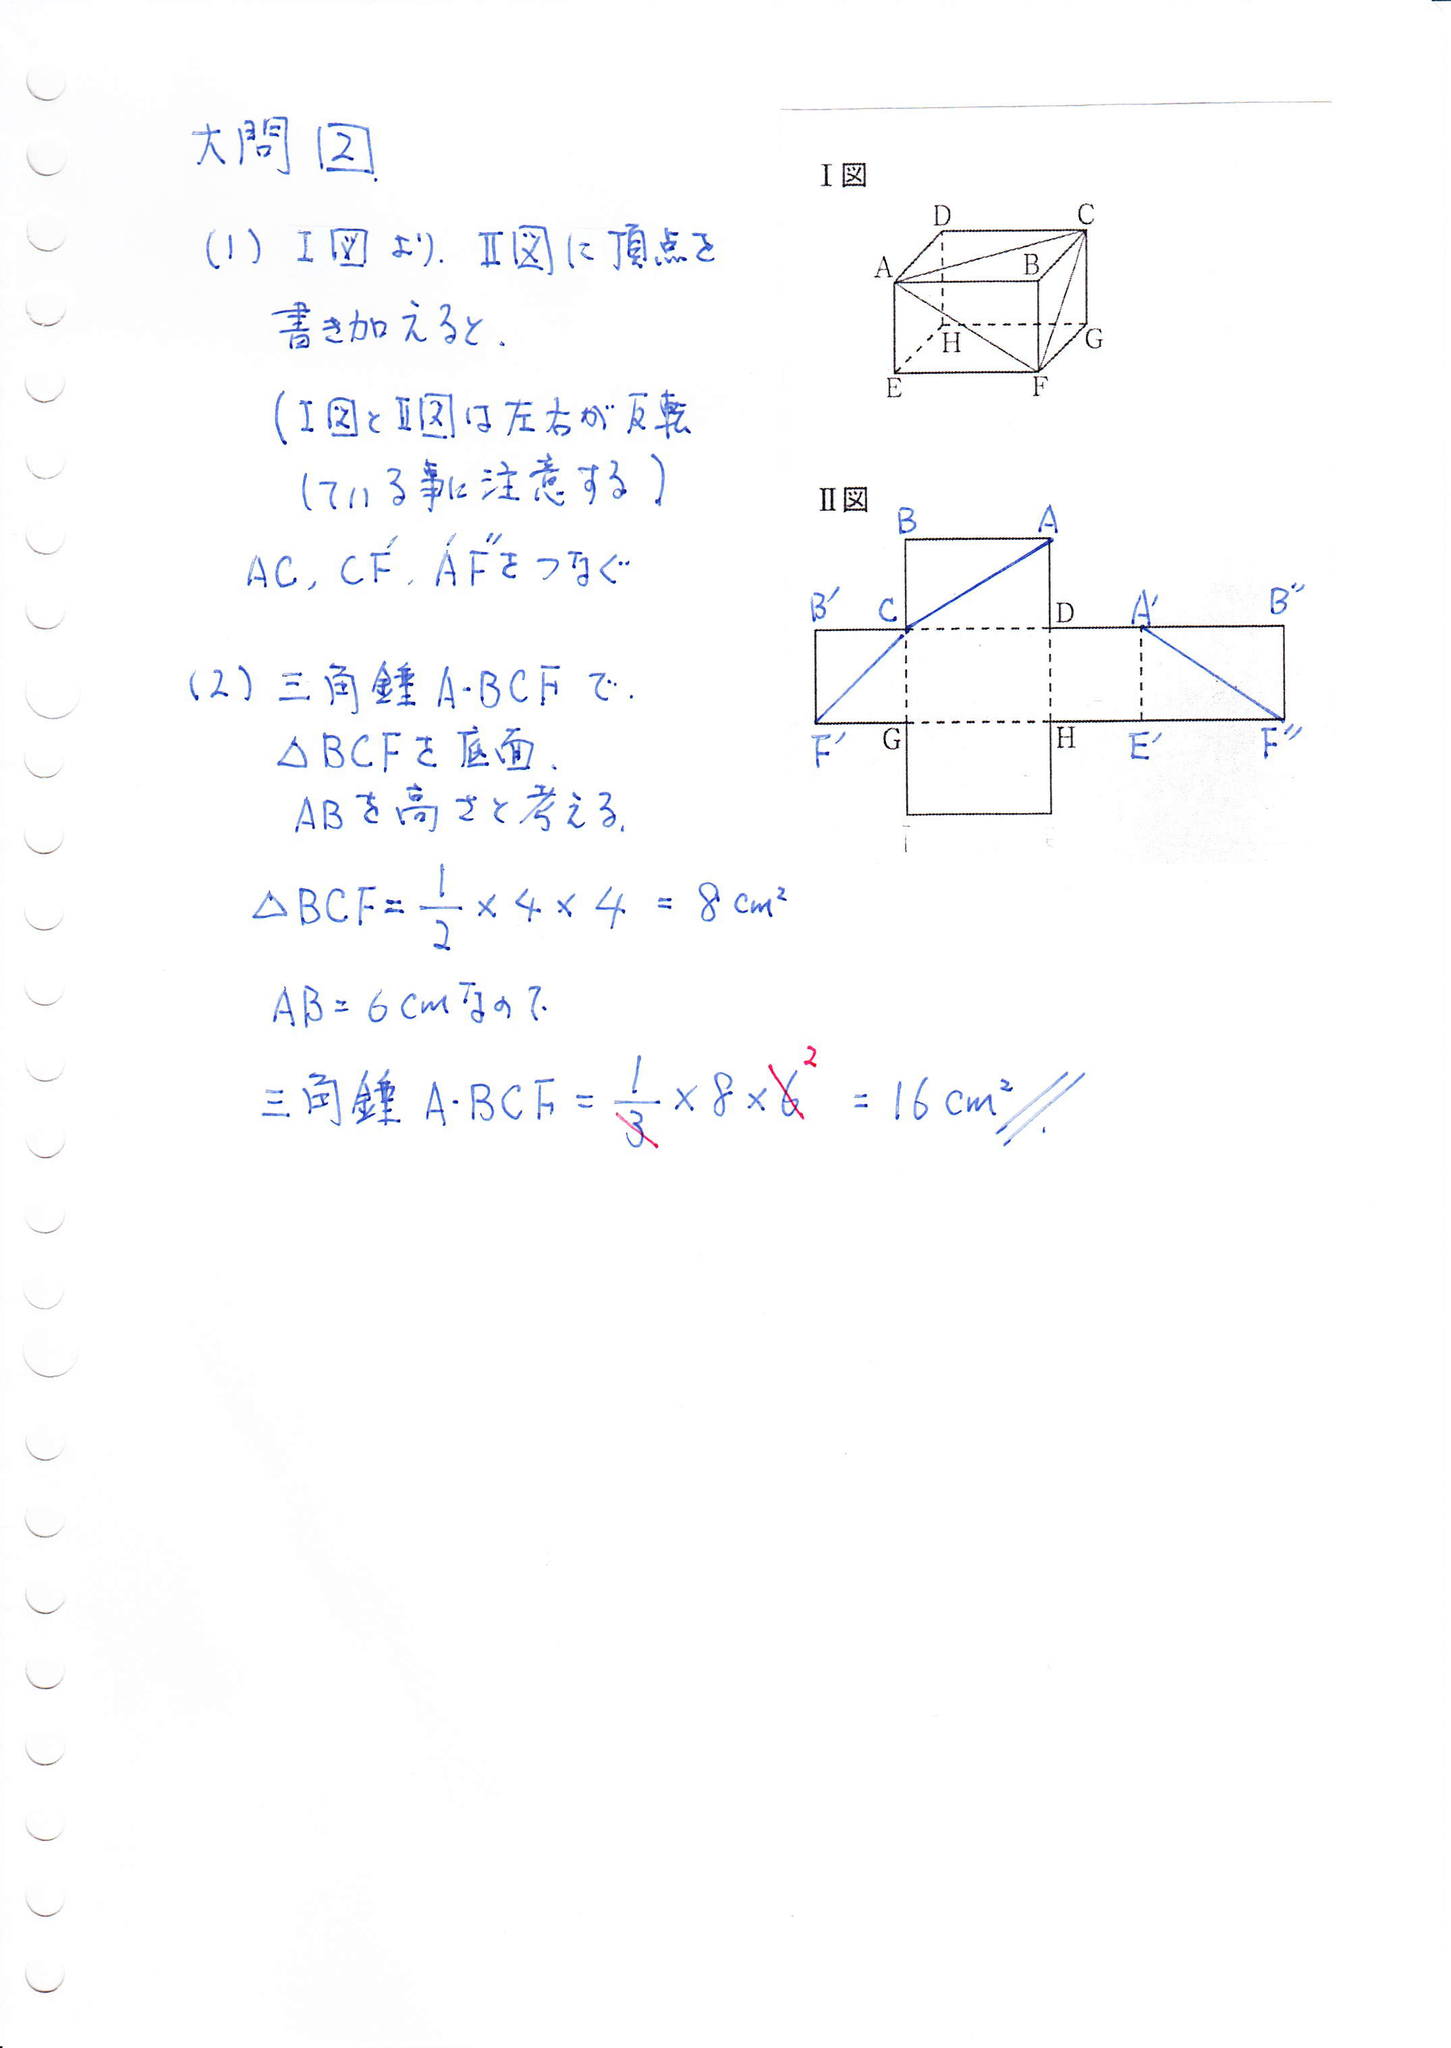 大問 2
(1) I図より、II図に頂点を
書き加えると、
(I図とII図は左右が反転
している事に注意する)
AC, CF′, A′F″をつなぐ
(2) 三角錘 A-BCF で、
△BCFを底面、
ABを高さと考える。
△BCF = 1/2 × 4 × 4 = 8 cm²
AB = 6cm なので
三角錘 A-BCF = 1/3 × 8 × 6 2 = 16 cm²
I図
D C
A B
H G
E F
II図
B A
B′ C D A′ B″
F′ G H E′ F″